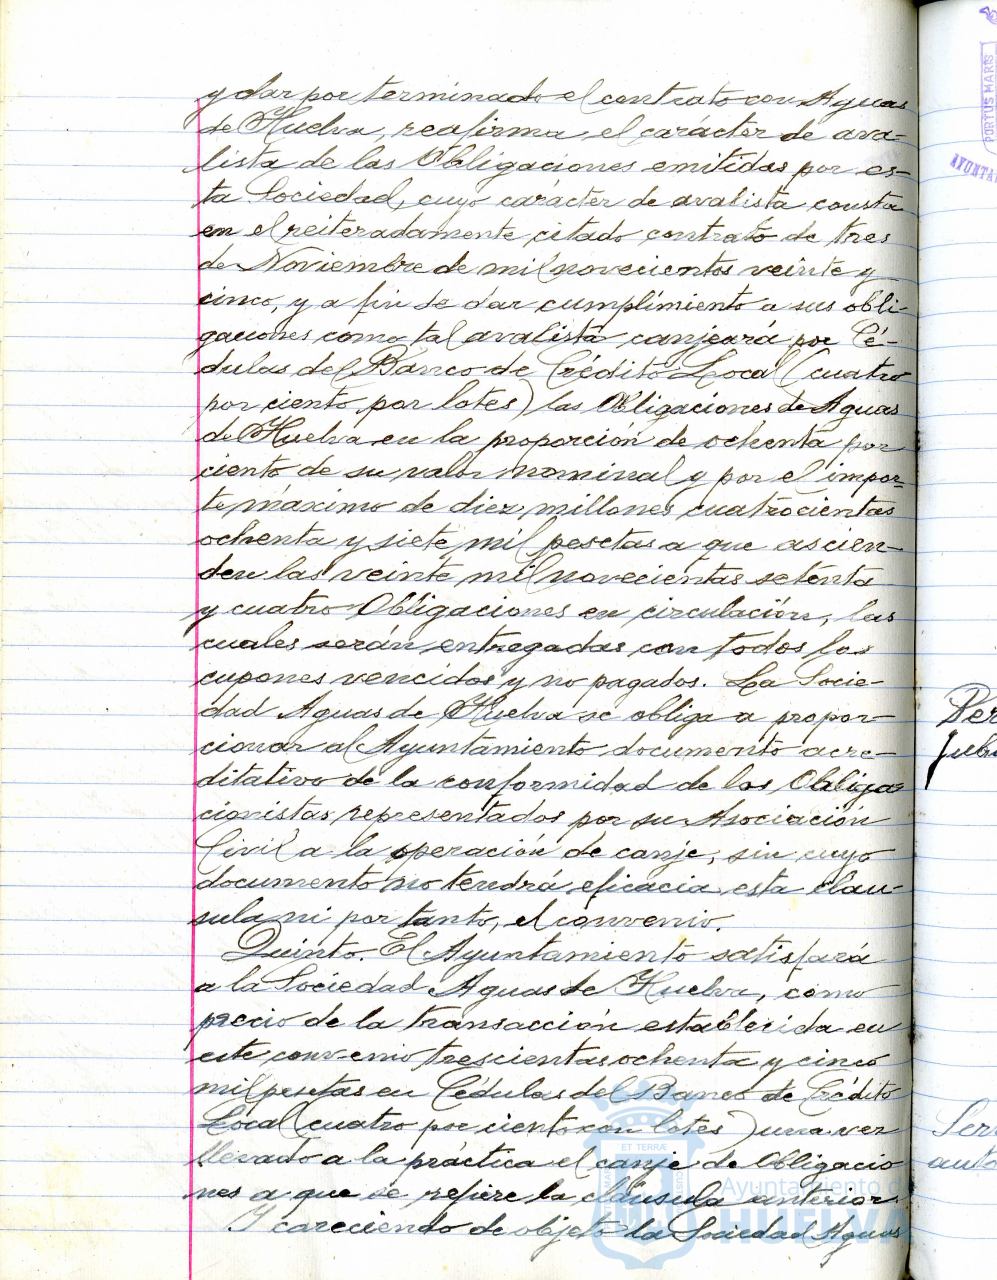 y dar por terminado el contrato con Aguas
de Huelva, reafirma el carácter de ava-
lista de las Obligaciones emitidas por es-
ta Sociedad, cuyo carácter de avalista consta
en el reiteradamente citado contrato de tres
de Noviembre de mil novecientos veinte y
cinco, y a fin de dar cumplimiento a sus obli-
gaciones como tal avalista canjeará por Cé-
dulas del Banco de Crédito Local (cuatro
por ciento por lotes) las Obligaciones de Aguas
de Huelva en la proporción de ochenta por
ciento de su valor nominal y por el impor-
te máximo de diez millones cuatrocientas
ochenta y siete mil pesetas a que ascien-
den las veinte mil novecientas setenta
y cuatro Obligaciones en circulación, las
cuales serán entregadas con todos los
cupones vencidos y no pagados. La Socie-
dad Aguas de Huelva se obliga a propor-
cionar al Ayuntamiento documento acre-
ditativo de la conformidad de los Obliga-
cionistas representados por su Asociación
Civil a la operación de canje, sin cuyo
documento no tendrá eficacia esta cláu-
sula ni por tanto, el convenio.
Quinto. El Ayuntamiento satisfará
a la Sociedad Aguas de Huelva, como
precio de la transacción establecida en
este convenio trescientas ochenta y cinco
mil pesetas en Cédulas del Banco de Crédito
Local (cuatro por ciento con lotes) una vez
llevado a la práctica el canje de Obligacio
nes a que se refiere la cláusula anterior.
Y careciendo de objeto la Sociedad Aguas
PORTUS MARIS
AYUNTA
Per
jubi
Serv
auto
ET TERRÆ
Ayuntamiento de
HUELVA